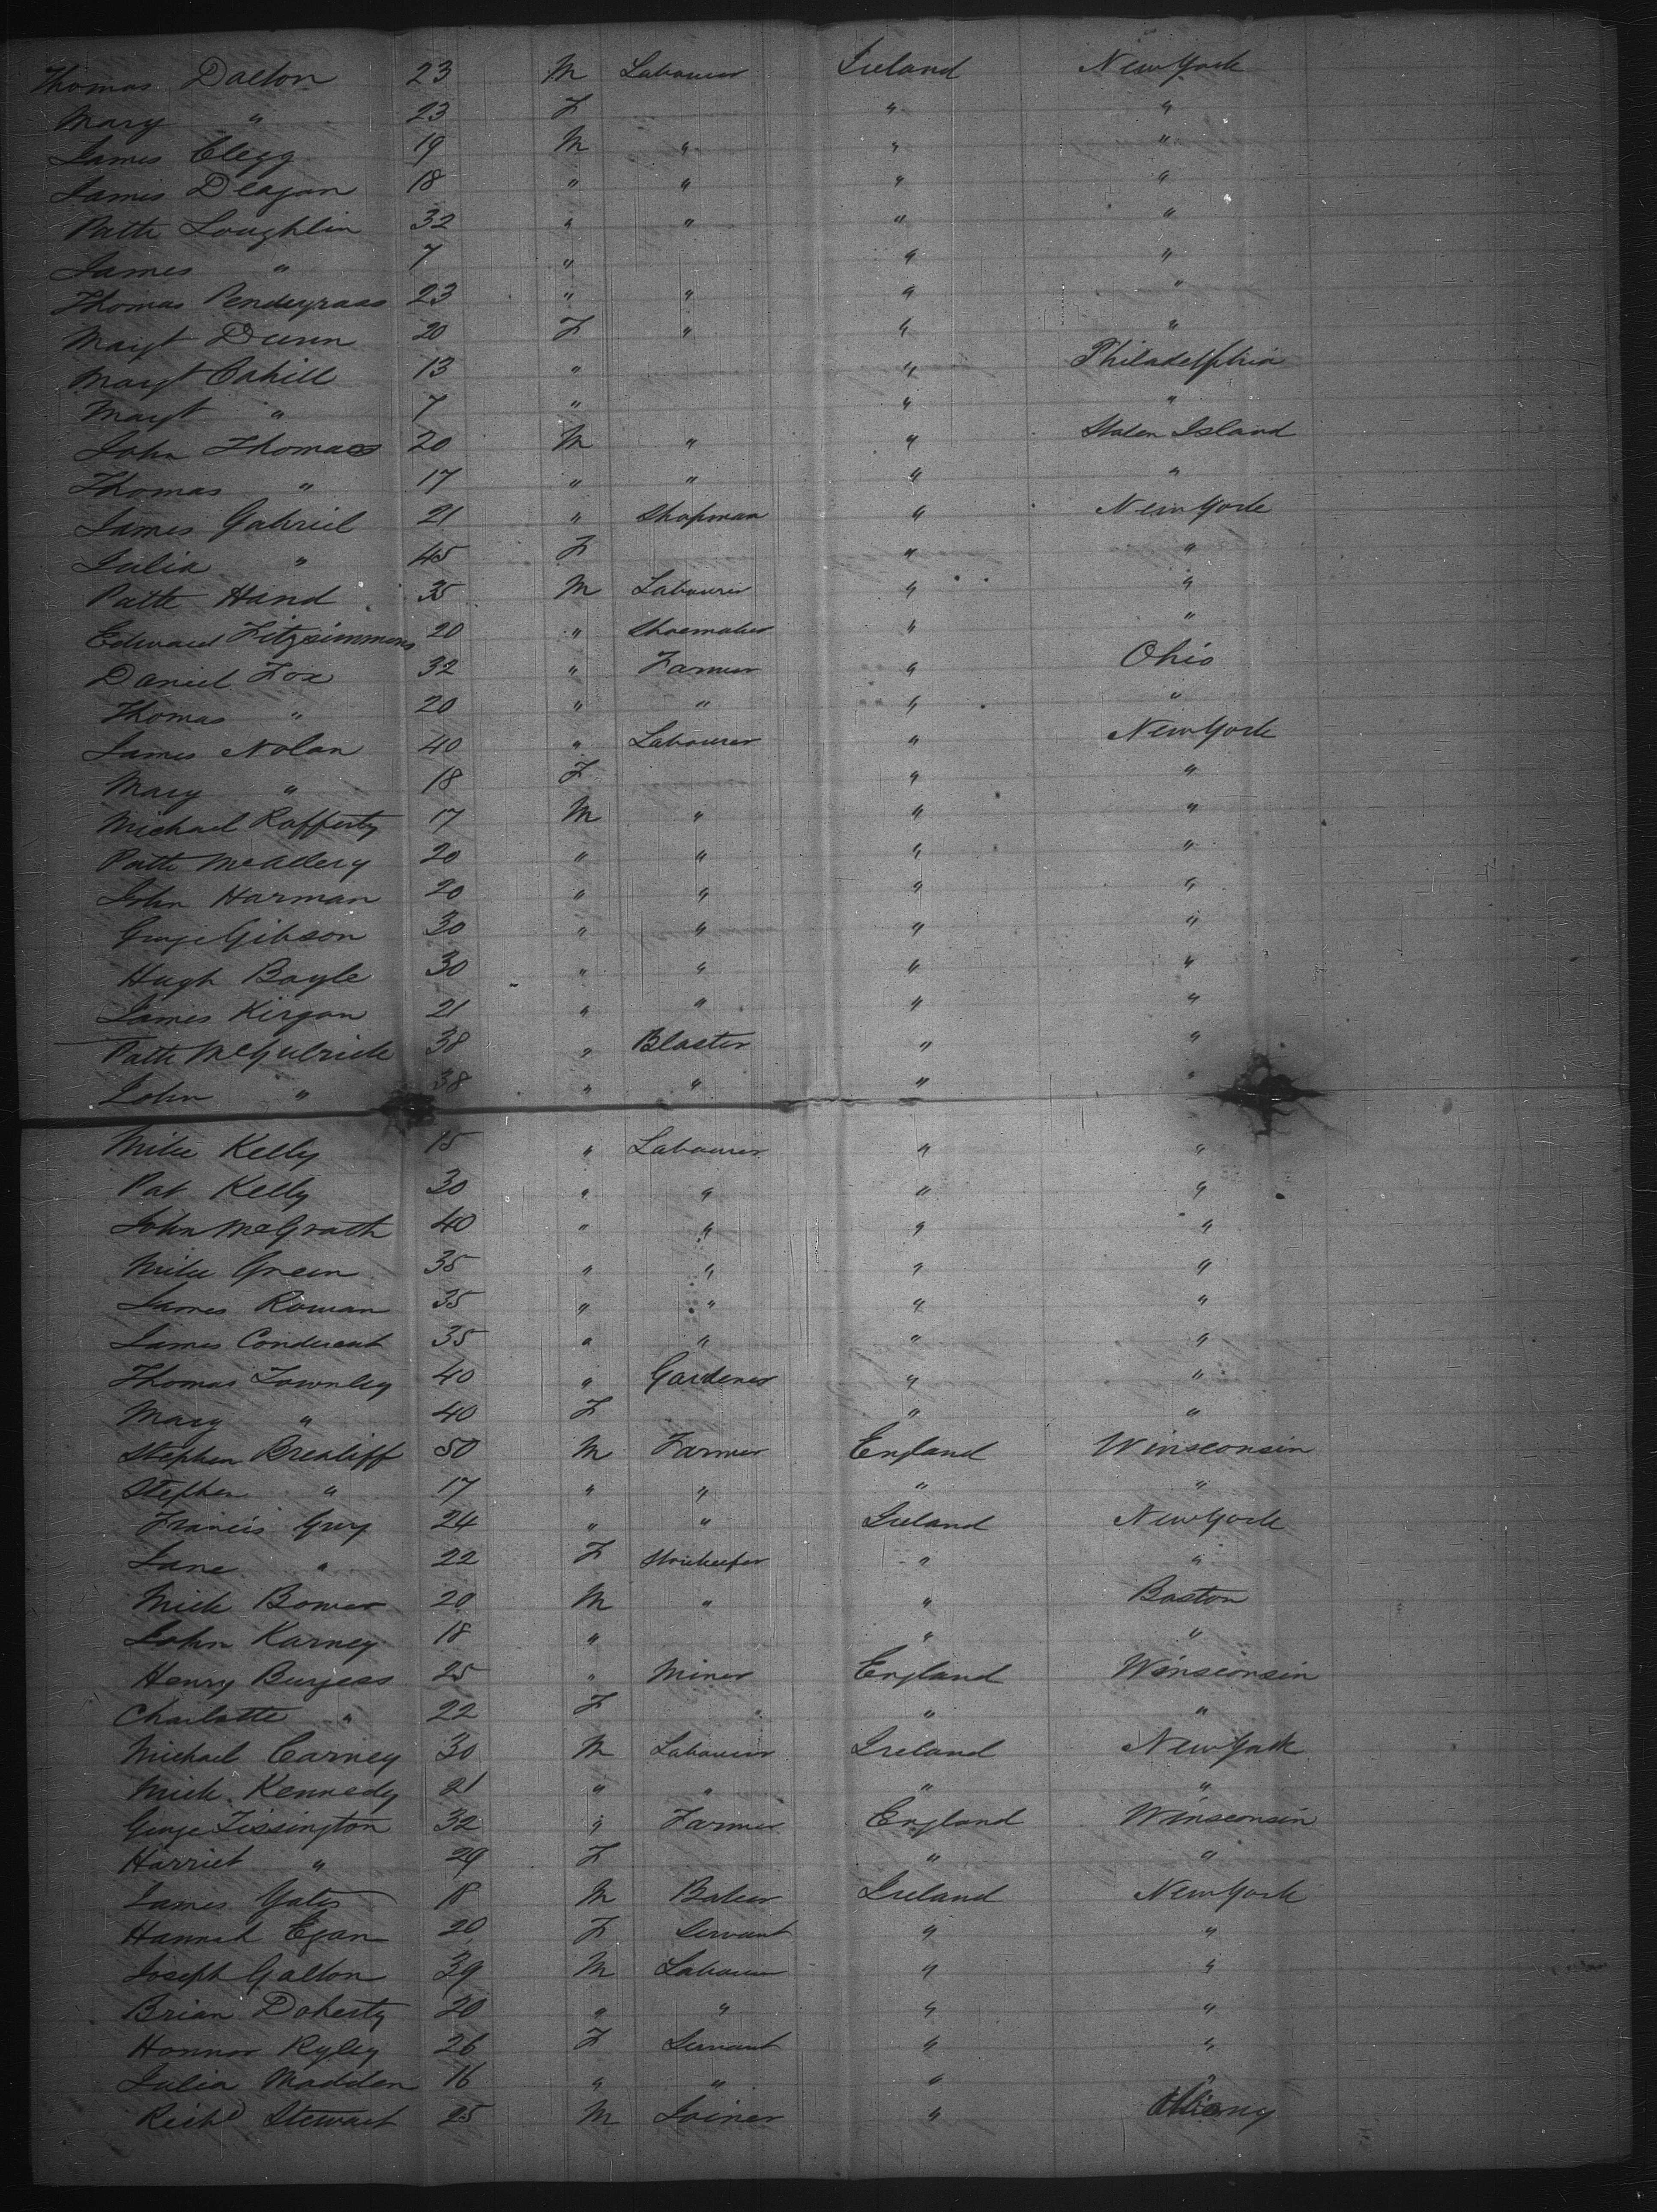 Thomas Dalton 23 M Labourer Ireland New York
Mary " 23 F " "
James Clegg 19 M " " "
James Deagan 18 " " " "
Patk Loughlin 32 " " " "
James " 7 " " "
Thomas Pendergrass 23 " " " "
Margt Dunn 20 F " " "
Margt Cahill 13 " " Philadelphia
Margt " 7 " " "
John Thomas 20 M " " Staten Island
Thomas " 17 " " " "
James Gabriel 21 " Shopman " New York
Julia " 45 F " "
Patk Hand 35 M Labourer " "
Edward Fitzsimmons 20 " Shoemaker " "
Daniel Fox 32 " Farmer " Ohio
Thomas " 20 " " " "
James Nolan 40 " Labourer " New York
Mary " 18 F " "
Michael Rafferty 17 M " " "
Patk McAlery 20 " " " "
John Harman 20 " " " "
George Gibson 30 " " " "
Hugh Boyle 30 " " " "
James Kirgan 21 " " " "
Patk McGulrick 38 " Blaster " "
John " 38 " " " "
Mike Kelly 15 " Labourer " "
Pat Kelly 30 " " " "
John McGrath 40 " " " "
Mike Green 35 " " " "
James Rowan 35 " " " "
James 35 " " " "
Thomas Townley 40 " Gardener " "
Mary " 40 F " "
Stephen 50 M Farmer England Winsconsin
Stephen " 17 " " " "
Francis Guy 24 " " Ireland New York
Jane " 22 F Storekeeper " "
Mick Bower 20 M " " Boston
John Karney 18 " " "
Henry Burgess 25 " Miner England Winsconsin
Charlotte " 22 F " "
Michael Carney 30 M Labourer Ireland New York
Mick Kennedy 21 " " " "
George Tissington 32 " Farmer England Winsconsin
Harriet " 29 F " "
James Yates 18 M Baker Ireland New York
Hannah Egan 20 F Servant " "
Joseph Galton 39 M Labourer " "
Brian Doherty 20 " " " "
Honnor Ryley 26 F Servant " "
Julia Madden 16 " " " "
Richd Stewart 25 M Joiner "